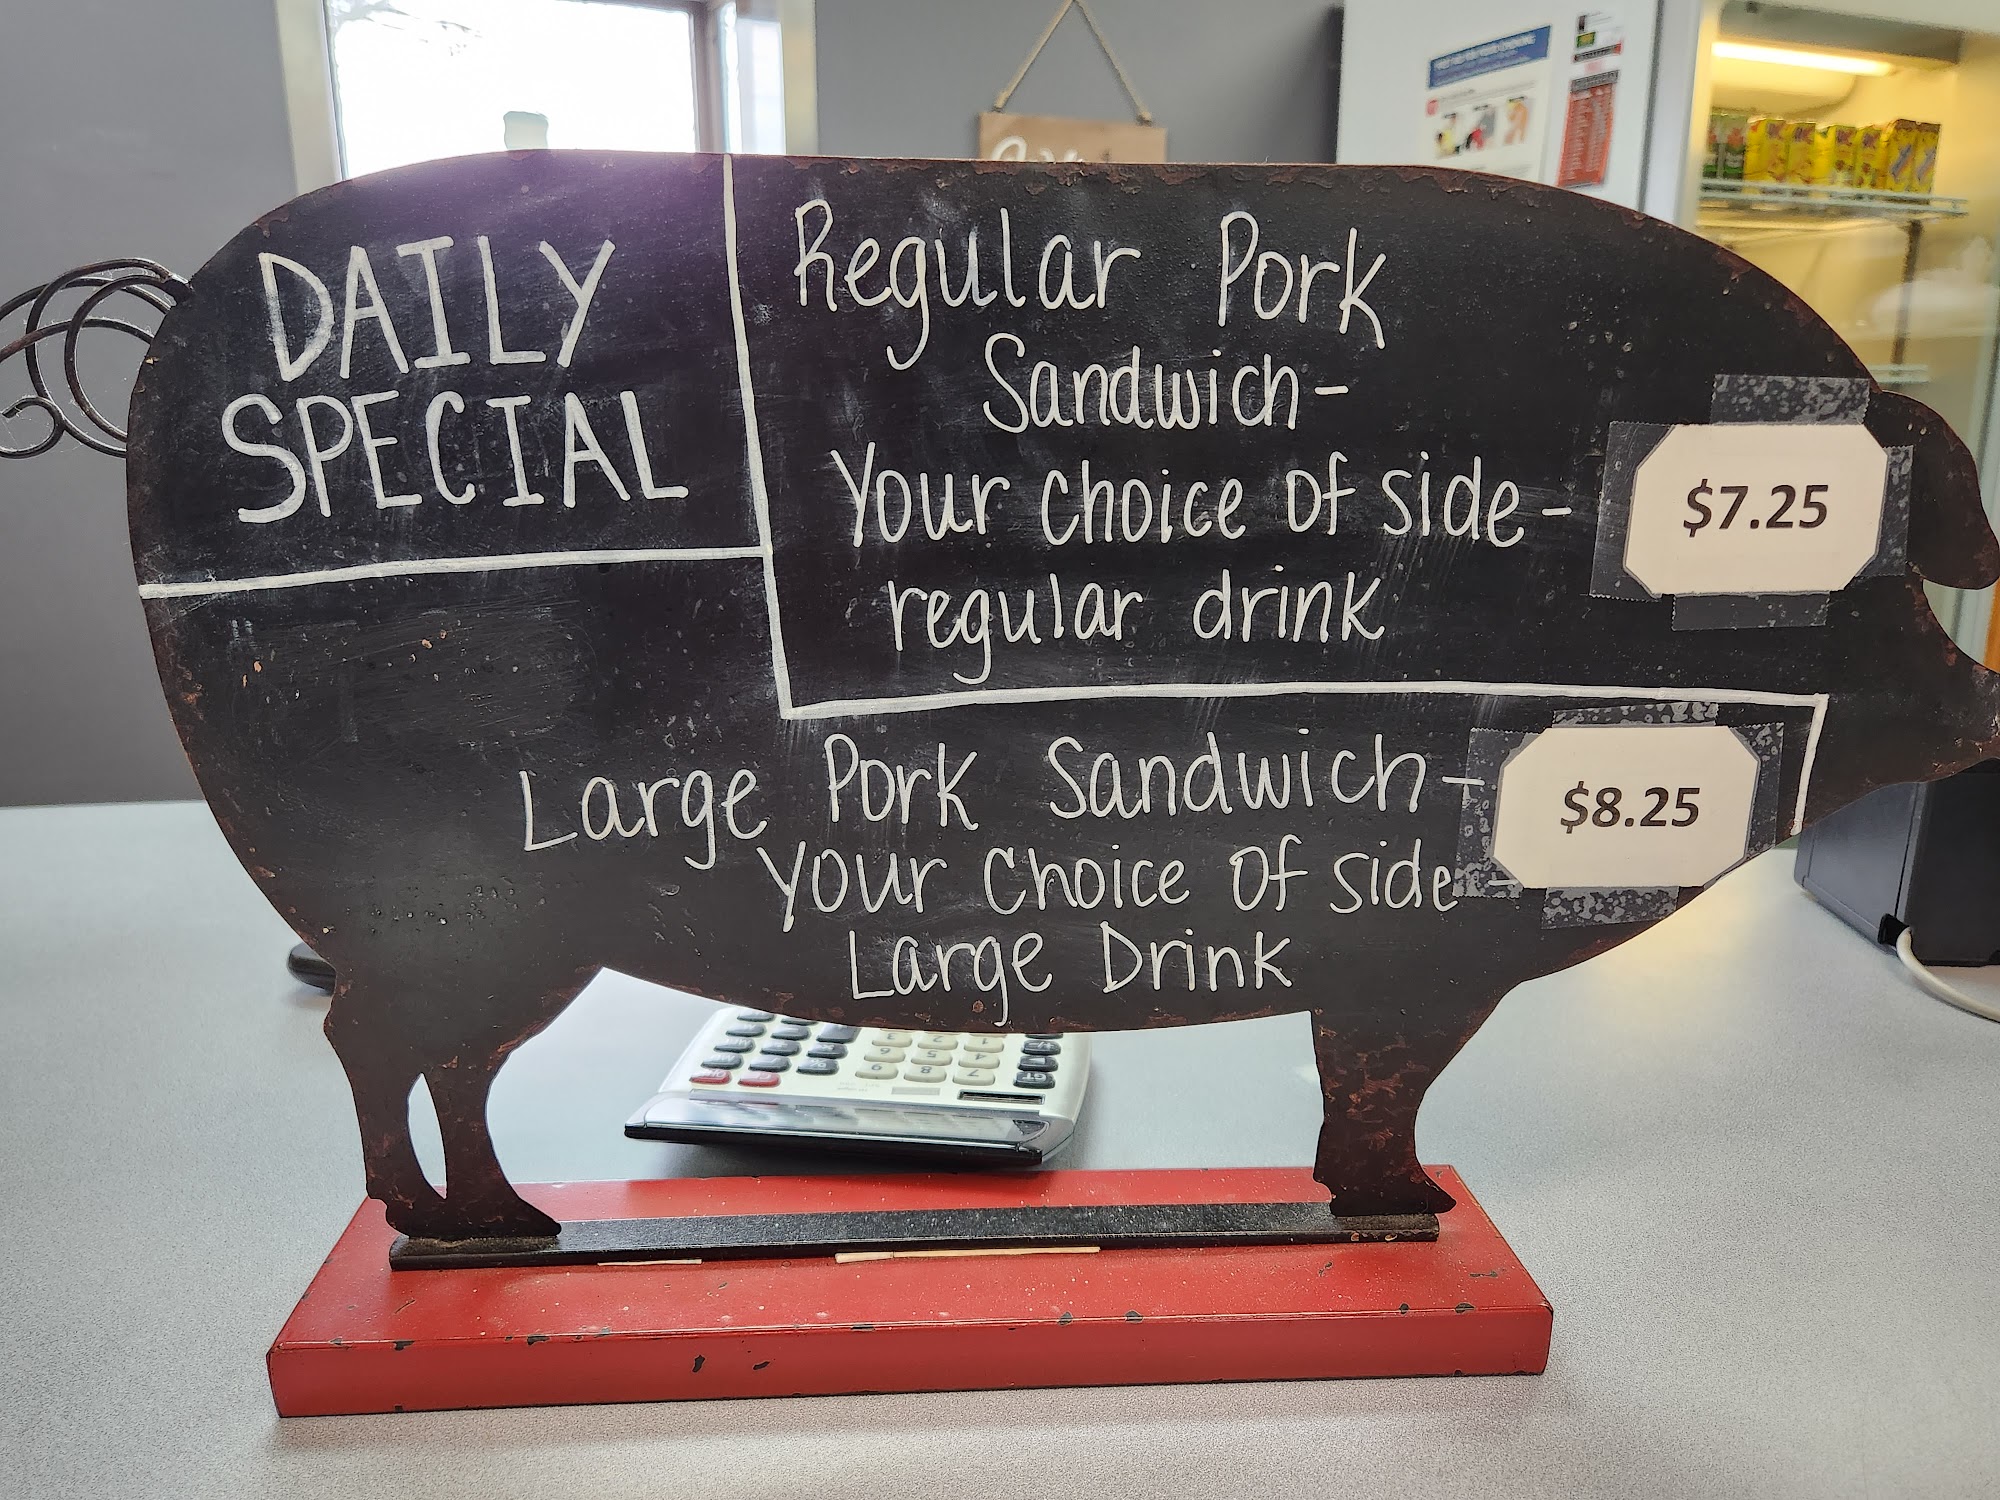 DAILY
SPECIAL
Regular Pork
Sandwich-
Your choice of side-
regular drink
$7.25
Large Pork Sandwich-
Your Choice of side-
Large Drink
$8.25